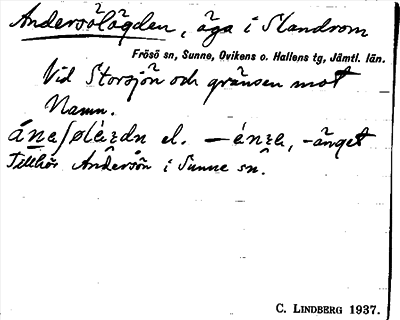 Andersölägden, äga i Slandrom
Frösö sn, Sunne, Ovikens o. Hallens tg, Jämtl. län.
Vid Storsjön och gränsen mot
Namn.
el. — änget
Tillhör Andersön i Sunne sn.
C. LINDBERG 1937.